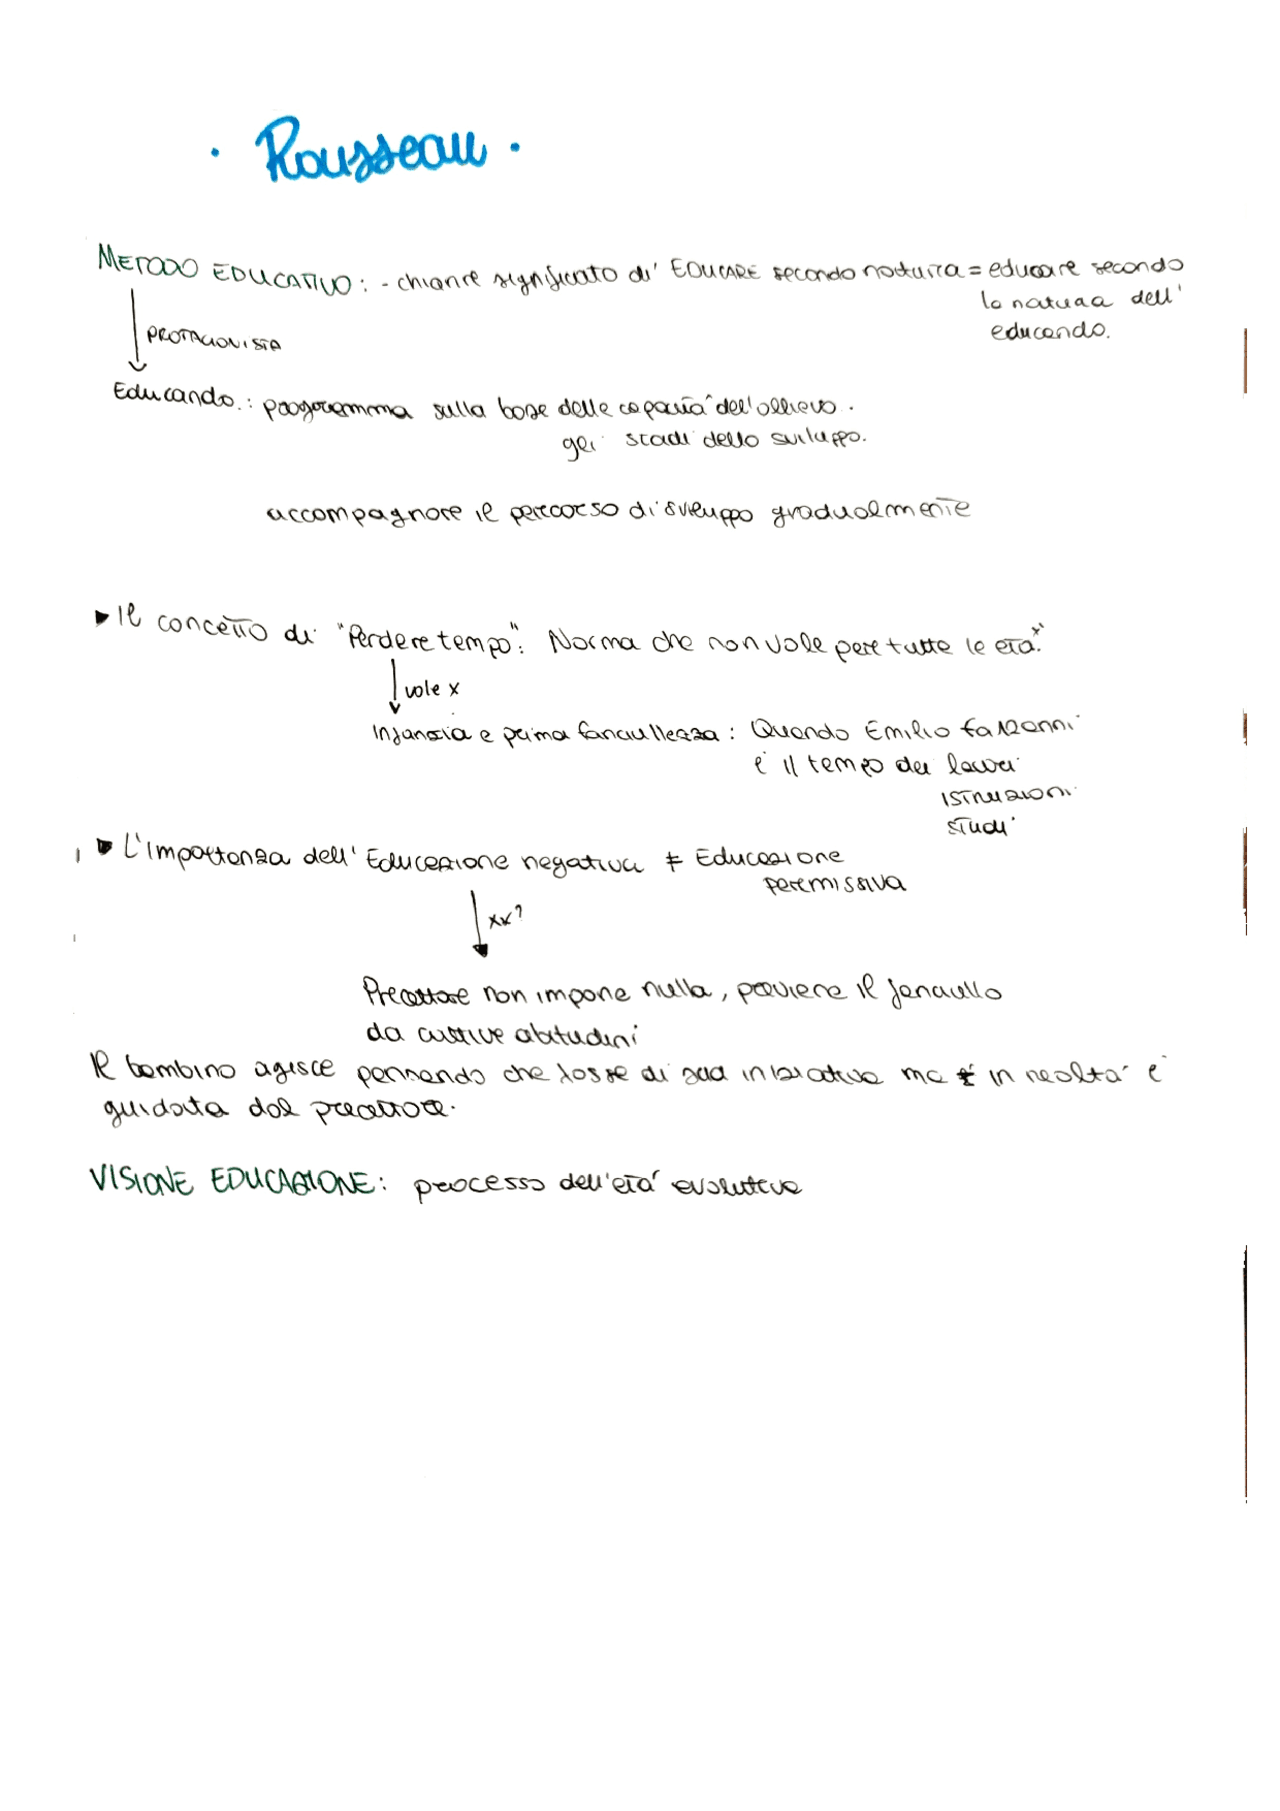 · Rousseau ·
METODO EDUCATIVO: - chiarire significato di EDUCARE secondo natura = educare secondo
la natura dell'
educando.
PROTAGONISTA
Educando.: programma sulla base delle capacità dell'allievo.
gli stadi dello sviluppo.
accompagnare il percorso di sviluppo gradualmente
▸ Il concetto di "Perdere tempo": Norma che non vale per tutte le età.*
vale x
Infanzia e prima fanciullezza: Quando Emilio fa 12 anni
è il tempo dei lavori
istruzioni
studi
▸ L'importanza dell'Educazione negativa ≠ Educazione
permissiva
xk?
Precettore non impone nulla, previene il fanciullo
da cattive abitudini
Il bambino agisce pensando che fosse di sua iniziativa ma in realtà è
guidata dal precettore.
VISIONE EDUCAZIONE: processo dell'età evolutiva